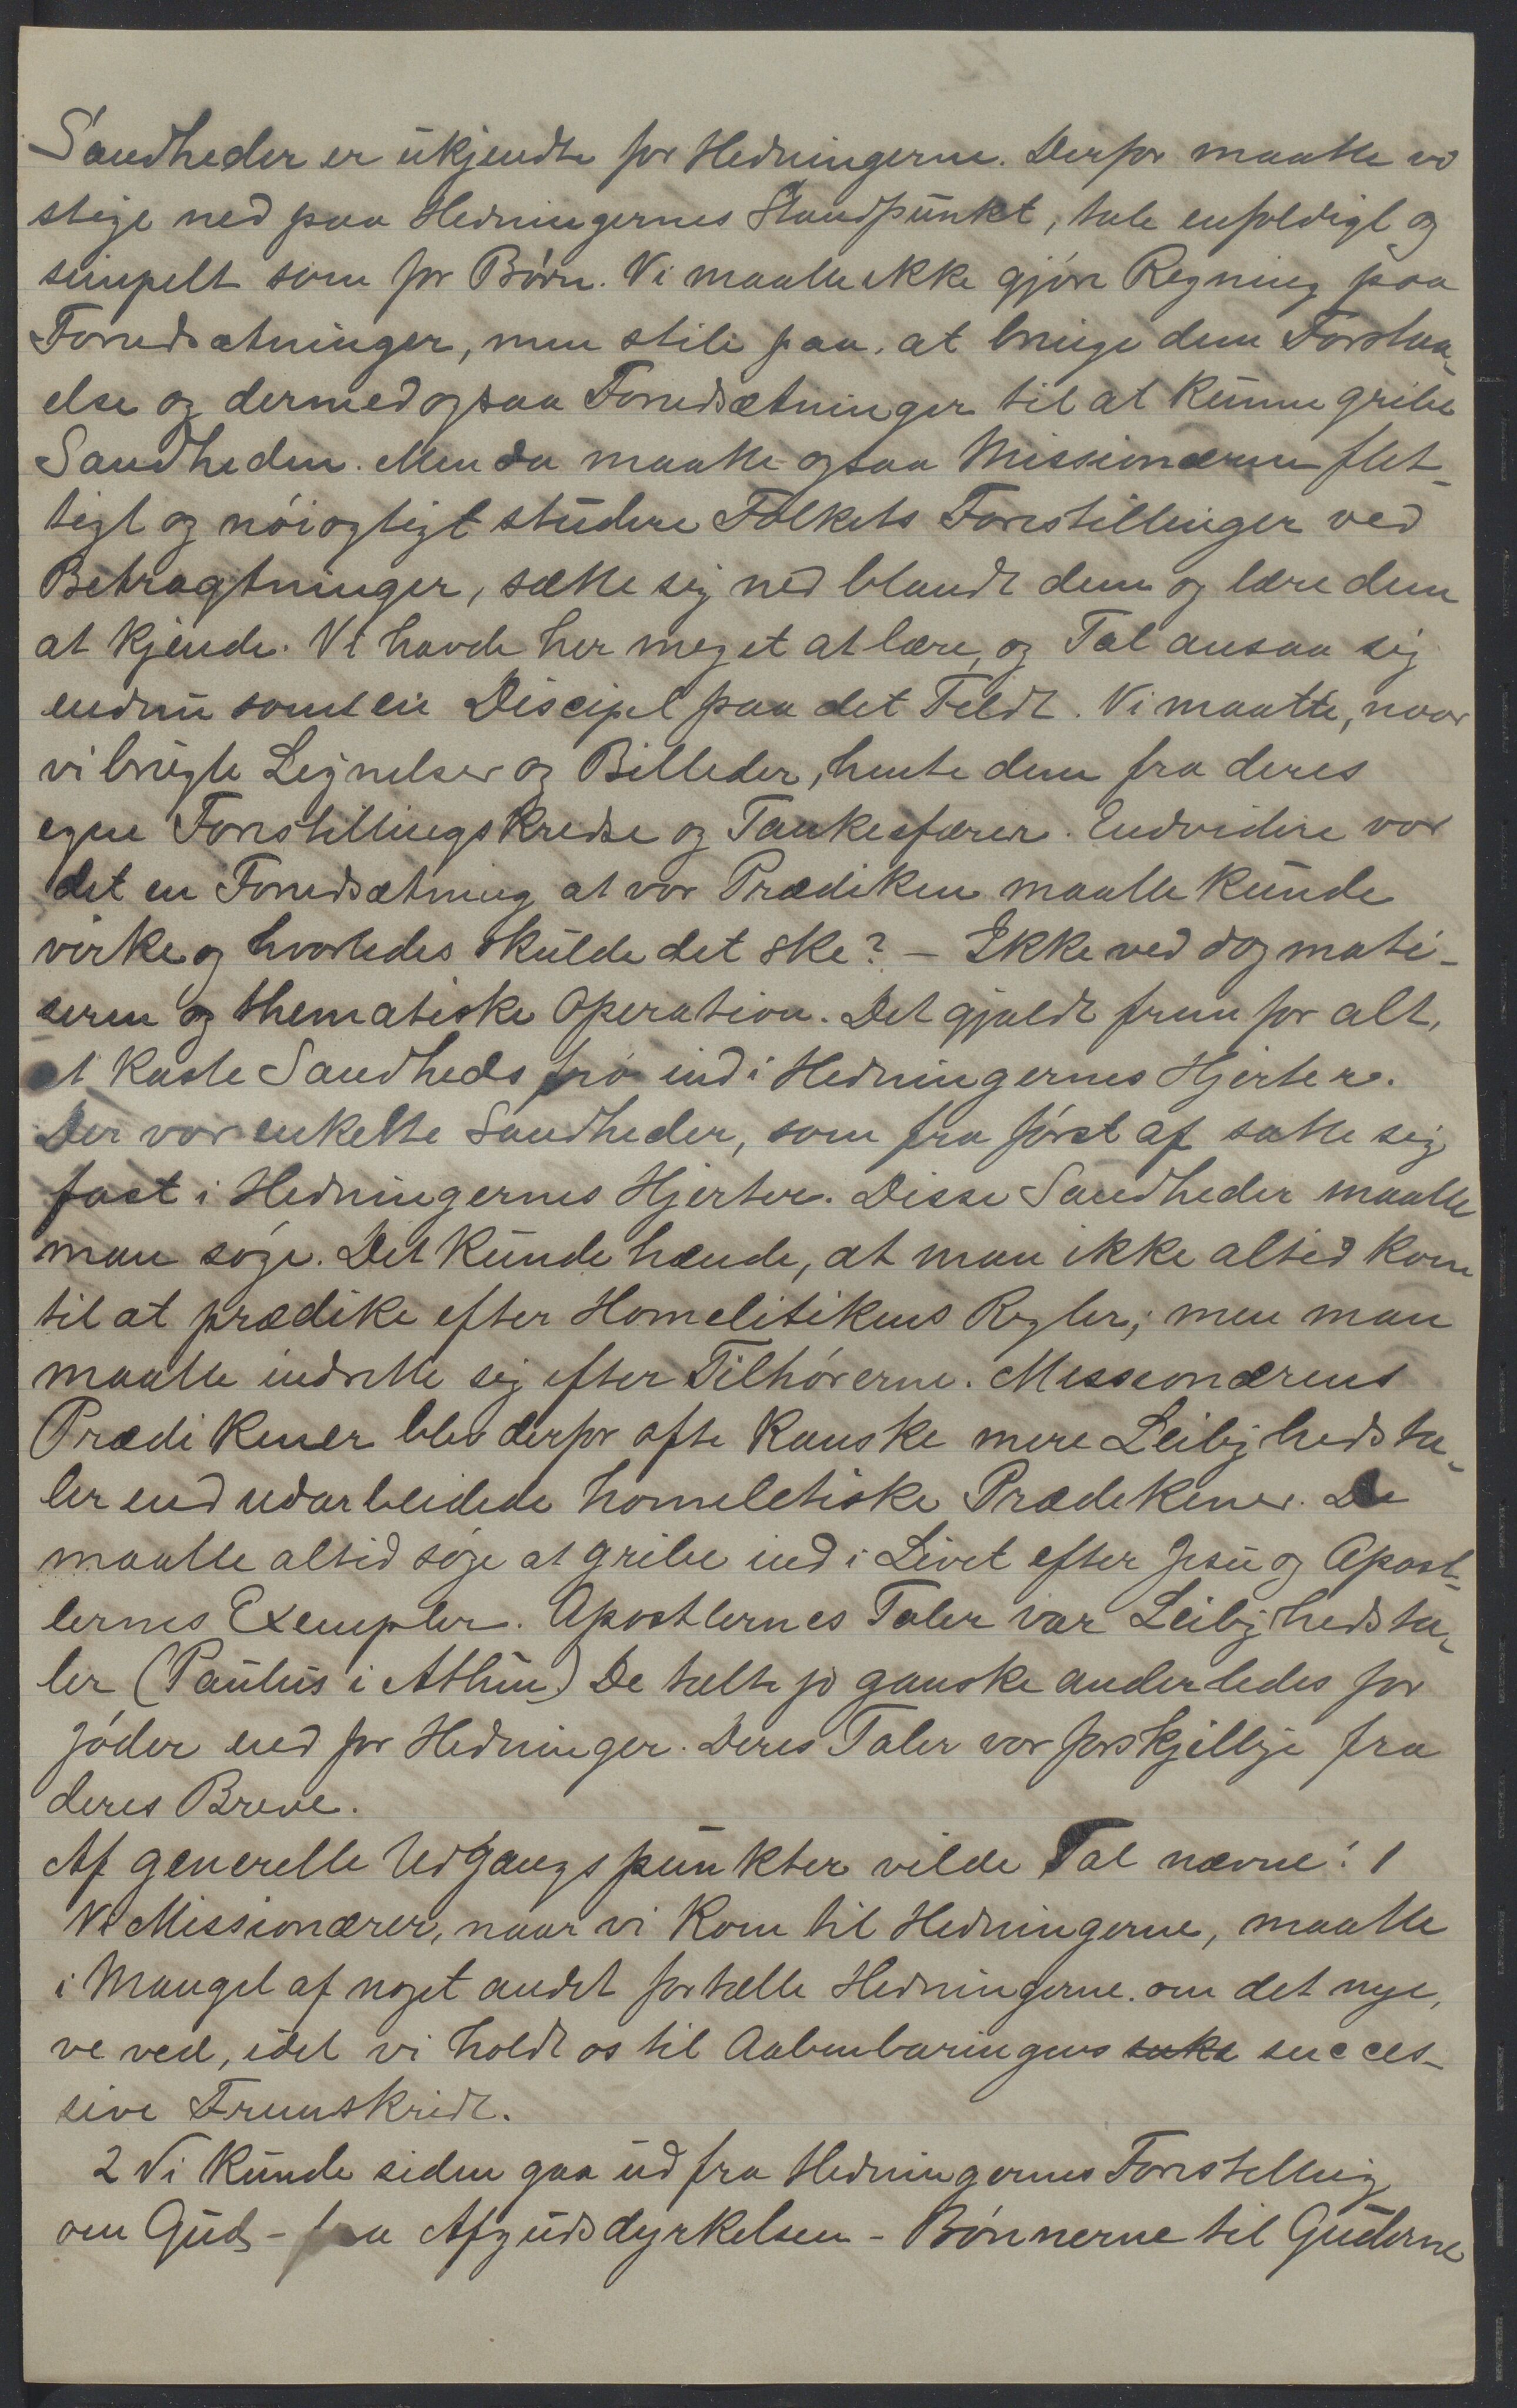 Sandheder er ukjendte for Hedningerne. Derfor maatte vi
stige ned paa Hedningernes Standpunkt, tale enfoldigt og
simpelt som for Børn. Vi maatte ikke gjøre Regning paa
Forudsætninger, men stile paa at bringe dem Forstaa-
else og dermed ogsaa Forudsætninger til at kunne gribe
Sandheden. Men da maatte ogsaa Missionæren flit-
tigt og nøiagtigt studere Folkets Forestillinger ved
Betragtninger, sætte sig ned blandt dem og lære dem
at kjende. Vi havde her meget at lære, og Tal ansaa sig
endnu som en Discipel paa det Feldt. Vi maatte, naar
vi brugte Lignelser og Billeder, hente dem fra deres
egne Forestillingskredse og Tankesfærer. Endvidere var
det en Forudsætning at vor Prædiken maatte kunde
virke og hvorledes skulde det ske? - Ikke ved dogmati-
seren og thematiske Operation. Det gjaldt frem for alt,
at kaste Sandheds frø ind i Hedningernes Hjerter.
Der var enkelte Sandheder, som fra først af satte sig
fast i Hedningernes Hjerter. Disse Sandheder maatte
man søge. Det kunde hænde, at man ikke altid kom
til at prædike efter Homelitikens Regler; men man
maatte indrette sig efter Tilhørerne. Missionærens
Prædikener blev derfor ofte kanske mere Leilighedsta-
ler end udarbeidede homeletiske Prædekener. De
maatte altid søge at gribe ind i Livet efter Jesu og Apost-
lernes Exempler. Apostlernes Taler var Leilighedsta-
ler (Paulus i Athen) De talte jo ganske anderledes for
Jøder end for Hedninger. Deres Taler var forskjellige fra
deres Breve.
Af generelle Udgangspunkter vilde Tal nævne: 1
Vi Missionærer, naar vi kom til Hedningerne, maatte
i Mangel af noget andet fortælle Hedningerne om det nye,
ve ved, idet vi holdt os til Aabenbaringens succes-
sive Fremskridt.
2 Vi kunde siden gaa ud fra Hedningernes Forestelling
om Gud - fra Afgudsdyrkelsen - Bønnerne til Guderne